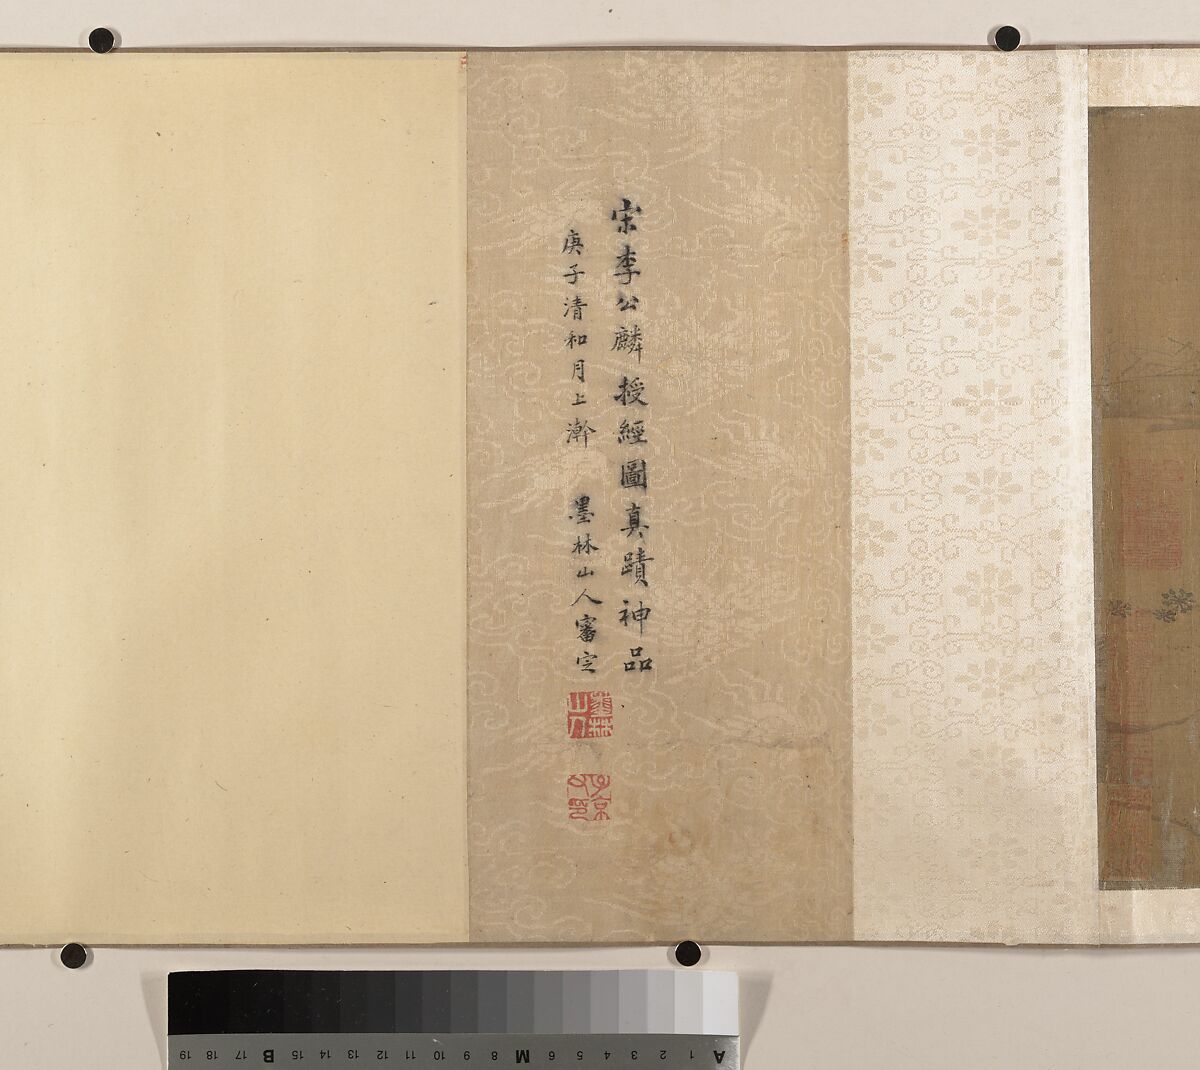 宋李公麟授經圖真蹟神品
庚子清和月上澣 墨林山人審定
墨林山人
子京父印
A 1 2 3 4 5 6 M 8 9 10 11 12 13 14 15 B 17 18 19